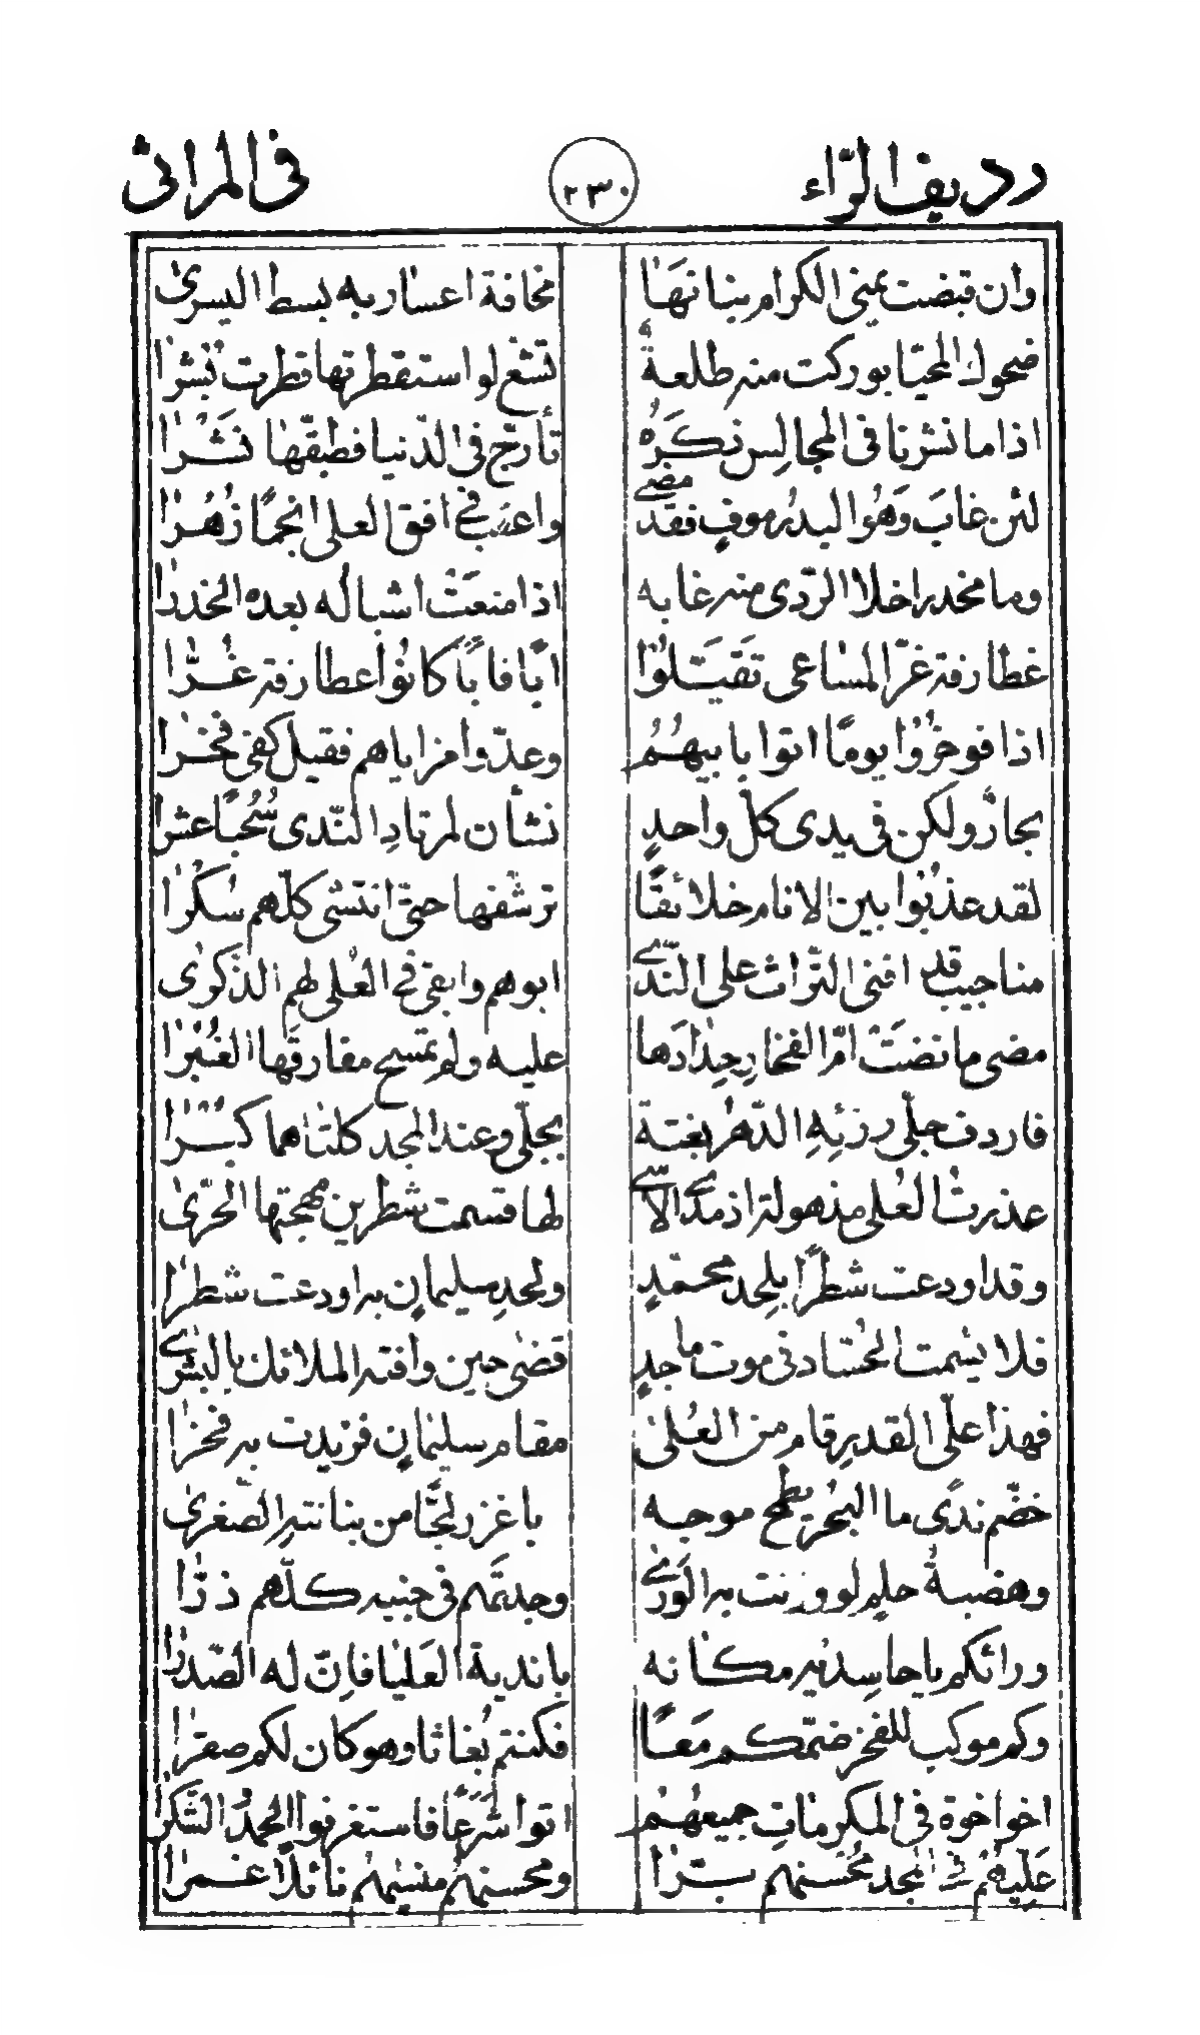 رديف الرّاء ٢٣٠ فى المراثى
وان قبضت يمنى الكرام بنانهَا مخافة اعسار به بسط اليسرىٰ
ضحوك المحيّا بوركت منه طلعةً تشعّ لو استقطرتها قطرت بشرا
اذا ما نشرنا فى المجالس ذكرَهُ تأرّج فى الدّنيا فطبّقها نَشْرا
لئن غابَ وَهُوَ البدرُ موفٍ فقد مضے واعقب فے افق العلى انجمًا زُهُرا
وما مخدر اخلا الرّدى منه غابه اذا منعَتْ اشباله بعده الخدرا
غطارفة غرّ المساعى تَقَيَّلوُا ابًا فابًا كانوُا غطارفة غُرّا
اذا فوخرُوا يومًا اتوا بابيهُمُ وعدّوا مزاياهم فقيل كفى فخرا
بحارٌ ولكن فى يدى كلّ واحدٍ نشأن لمرتادِ النّدى سُحُبًا عشرا
لقد عذبُوا بين الانام خلائقًا ترشّفها حتى انتشى كلّهم سُكرا
مناجيب قد افنى التّراث على النّدے ابوهم وابقى فے العُلى لهم الذّكرىٰ
مضى ما نضَتْ امّ الفخارِ حِدادَها عليه ولم تمسح مفارقَها الغُبْرا
فاردف جلّى رزئِهِ الدّهرُ بغتة بجلّى وعند المجد كلتاهما كُبْرا
عذرتُ العُلى مذهولة اذ مدے الاسّے لها قسمت شطرين مهجتها الحرّىٰ
وقد اودعت شطرًا بلحد محمّدٍ ولحدِ سليمانٍ به اودعت شطرا
فلا يشمت الحسّاد فى موت ماجدٍ قضى حين وافته الملائك بالبشرے
فهذا علىّ القدرِ قام من العُلىٰ مقام سليمانٍ فزيدت به فخرا
خضّم ندًى ما البحرُ يطفح موجه باغزر لجًّا من بنانتهِ الصّغرىٰ
وهضبةُ حلمٍ لو وزنت به الوَرےٰ وجدتَهم فى جنبه كلّهم ذرّا
ورائكم يا حاسديهِ مكانه باندية العَليا فانّ له الصّدرا
وكم موكب للفخر ضمّكم مَعًا فكنتم بُغاثا وهو كان لكم صقرا
اخو اخوة فى المكرماتِ جميعهُم اتوا شَرَعًا فاستغرقوا الحمدُ والشّكرا
عَليهُم فے المجد مُحسنهم بِرّا ومحسنهُم منسيهُم نائلًا غمرا